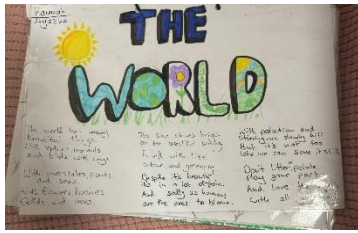 THE
WORLD
The world has many
beautiful things
With
and birds with wings
With
and seas.
With flowers, bushes
fields and trees.
The sun shines bright
on the
Filled with life
colour and greenery
Despite its beauty
its in a lot of pain.
And sadly us humans
are the ones to blame.
With pollution and
littering we slowly kill
But it's not too
late we can save it still
Don't litter, pollute
play your part
And love
with all